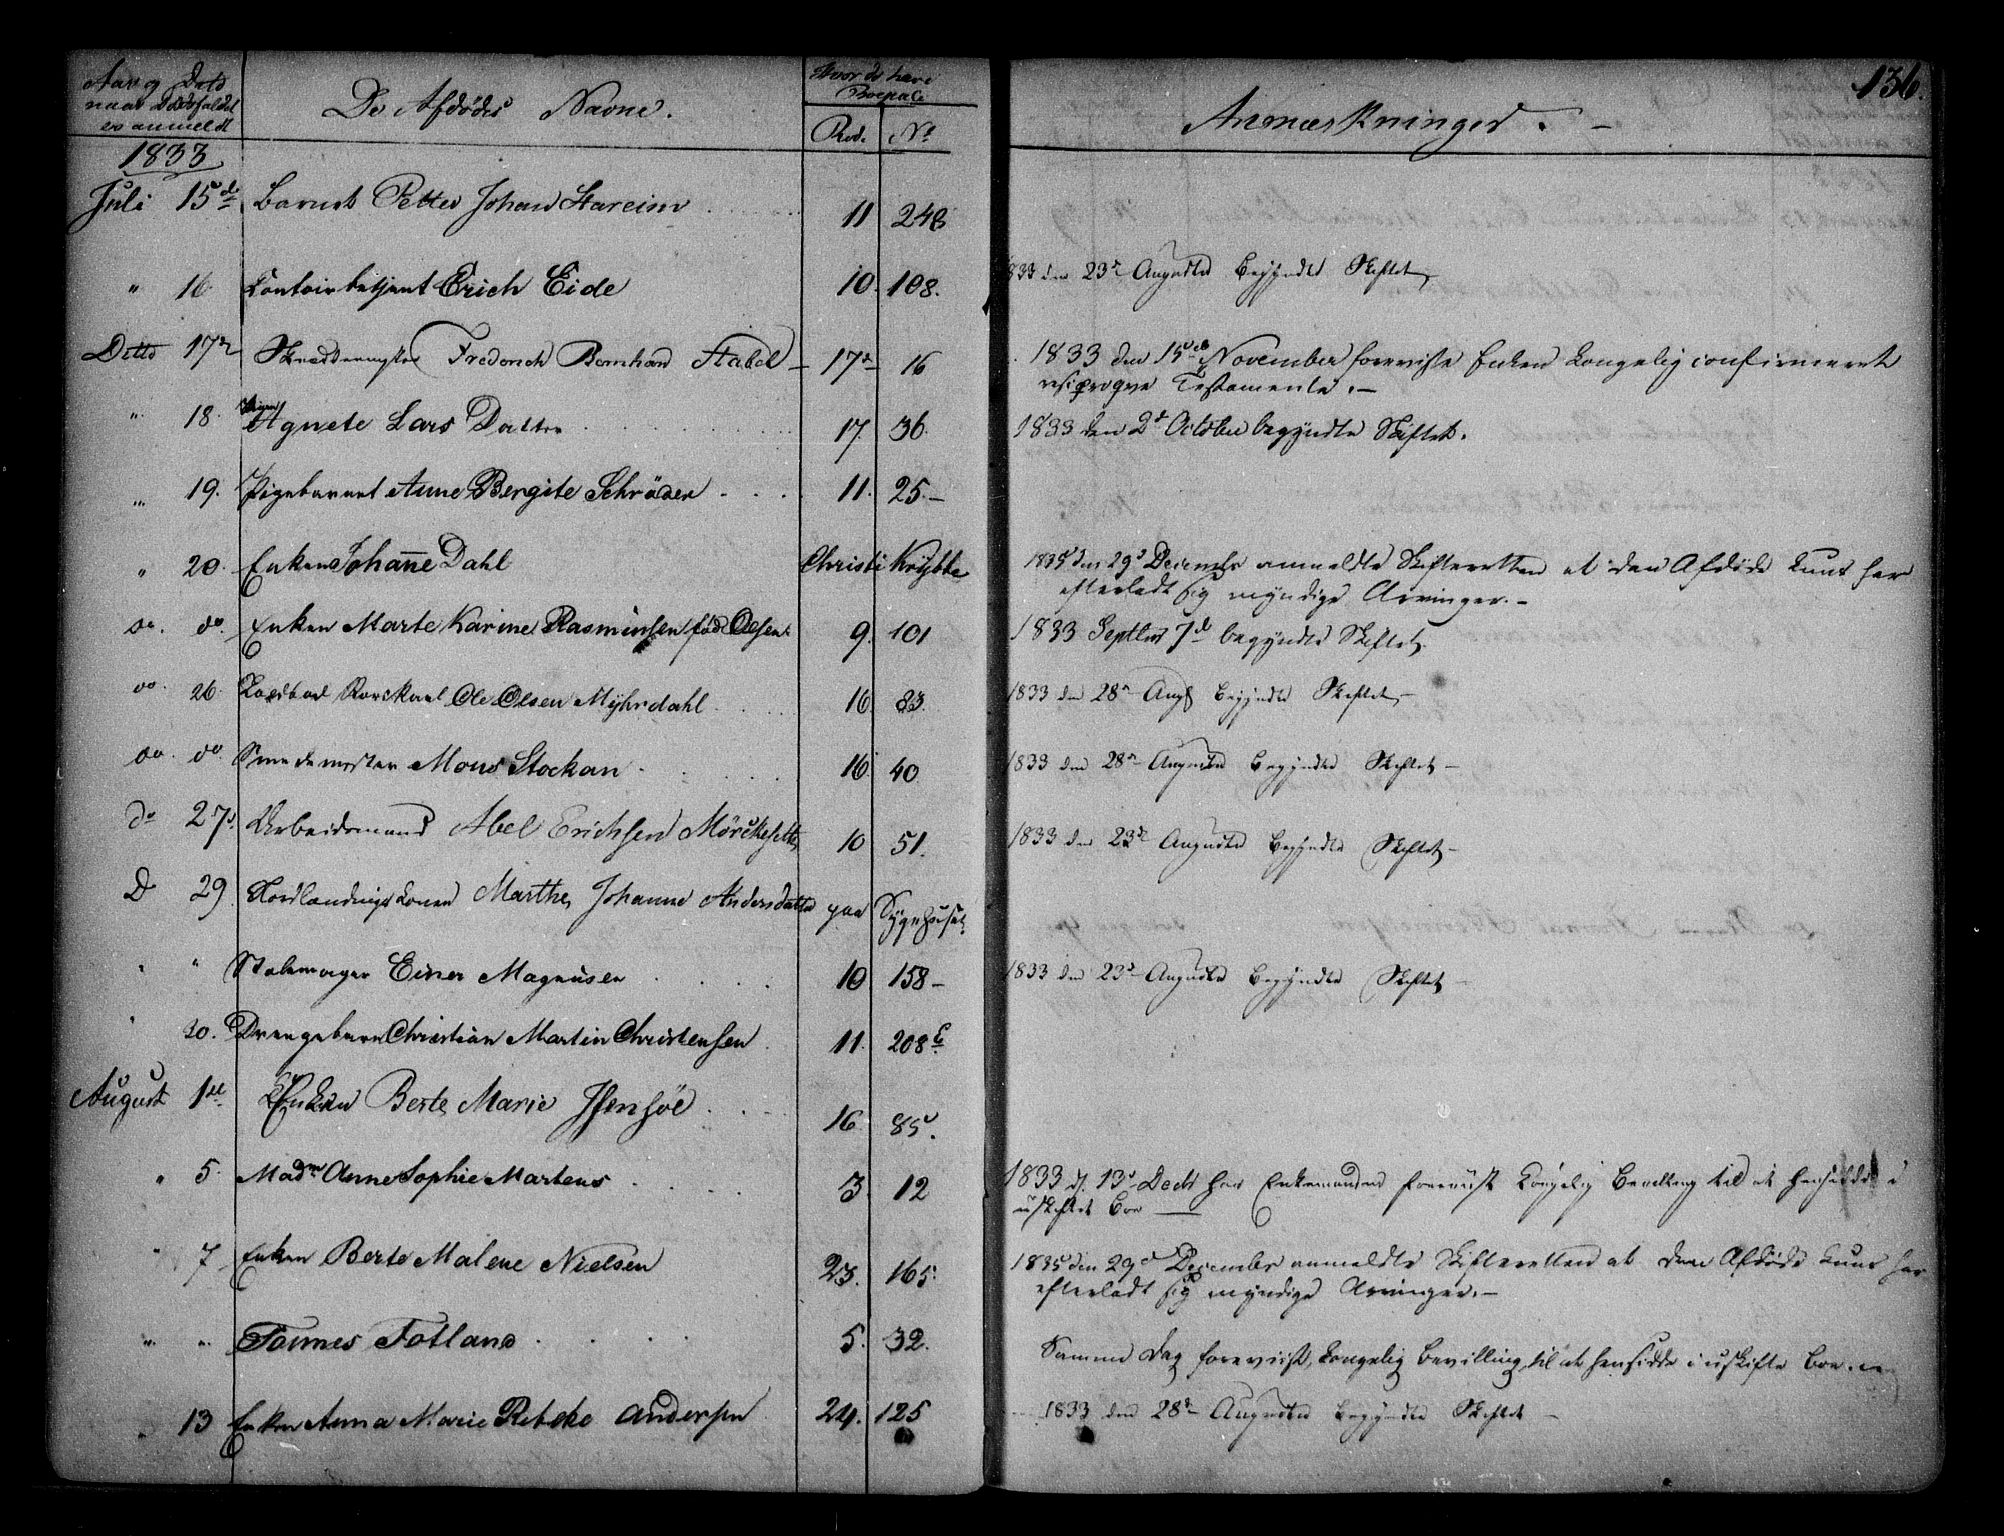 136.
Aar og Dato De Afdødes Navne. Hvor de have Boepæl Anmærkninger. —
naar Dødsfaldet
er anmeldt Rod. No
1833
Juli 15de Barnet Petter Johan Hareim 11 248
" 16 Contoirbetjent Erich Eide 10. 108. 1833 den 23de Augusti begyndte Skiftet,
Ditto 17de Skreddermester Frederich Bernhard Stabel — 17de 16 1833 den 15de November foreviste Enken Kongelig confirmeret
reciproqve Testamente. —
" 18. Agnete Lars Datter 17. 36. 1833 den 2de October begyndte Skiftet.
" 19. Pigebarnet Anne Bergite Schrøder 11. 25. —
" 20. Enken Johanne Dahl Christi Krybbe 1835 den 29de December anmeldte Skifteretten at den Afdøde kuns har
efterladt sig myndige Arvinger. —
do. do. Enken Marte Karine Rasmussen fød Olsen. 9. 101 1833 Septbr 7de begyndte Skiftet.
do. 26. Ole Olsen Myhrdahl 16. 83. 1833 den 28de Augt begyndte Skiftet, —
do. do Smedemester Mons Stockan 16. 40. 1833 den 28de Augusti begyndte Skiftet —
do 27de Arbeidsmand Abel Erichsen Mörckesett 10 51. 1833 den 23de Augusti begyndte Skiftet —
Do 29. Nordlandings Konen Marthe Johanne Andersdatter paa Sygehuset.
" " Stolemager Einer Magnusen 10 158 — 1833 den 23de Augusti begyndte Skiftet —
" 30. Drengebarn Christian Martin Christensen 11. 208 b.
August 1ste Enken Berte Marie Isensöe 16. 85.
" 5. Madme Anne Sophie Martens 3. 12 1833 d. 13de Decbr har Enkemanden foreviist Kongelig Bevilling til at hensidde i
uskiftet Boe —
" 7 Enken Berte Malene Nielsen 23. 165. 1835 den 29de December anmeldte Skifteretten at den Afdøde kuns har
efterladt sig myndige Arvinger. —
" " Tonnes Totland 5. 32. Samme Dag foreviist Kongelig Bevilling til at hensidde i uskifte Boe. —
" 13 Enken Anna Marie Andersen 24. 125 1833 den 28de Augusti begyndte Skiftet —